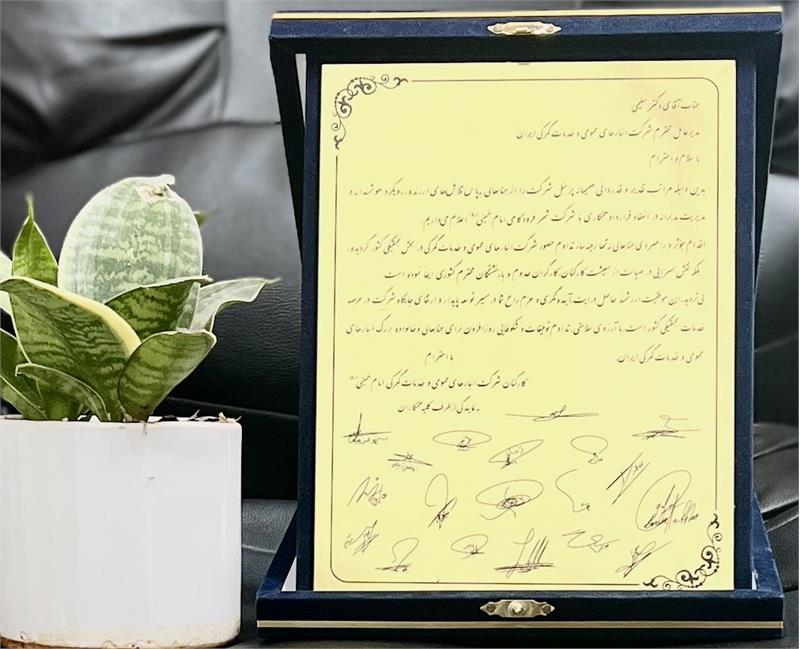 جناب آقای دکتر سلیمی
مدیرعامل محترم شرکت انبارهای عمومی و خدمات گمرکی ایران
با سلام و احترام
بدین وسیله مراتب تقدیر و قدردانی صمیمانه پرسنل شرکت را از جنابعالی به پاس تلاش‌های ارزنده، رویکرد هوشمندانه و
مدیریت مدبرانه در انعقاد قرارداد همکاری با شرکت شهر فرودگاهی امام خمینی(ره) اعلام می‌داریم.
اقدام مؤثر و راهبردی جنابعالی نه تنها زمینه‌ساز تداوم حضور شرکت انبارهای عمومی و خدمات گمرکی در بخش لجستیکی کشور گردیده،
بلکه نقش بسزایی در صیانت از معیشت کارکنان، کارگران خدوم و بازنشستگان محترم کشوری ایفا نموده است.
بی‌تردید، این موفقیت ارزشمند حاصل درایت، آینده‌نگری و عزم راسخ شما در مسیر توسعه پایدار و ارتقای جایگاه شرکت در عرصه
خدمات لجستیکی کشور است. با آرزوی سلامتی، تداوم توفیقات و شکوفایی روزافزون برای جنابعالی و خانواده بزرگ انبارهای
عمومی و خدمات گمرکی ایران. با احترام
کارکنان شرکت انبارهای عمومی و خدمات گمرکی امام خمینی(ره)
به نمایندگی از طرف کلیه همکاران